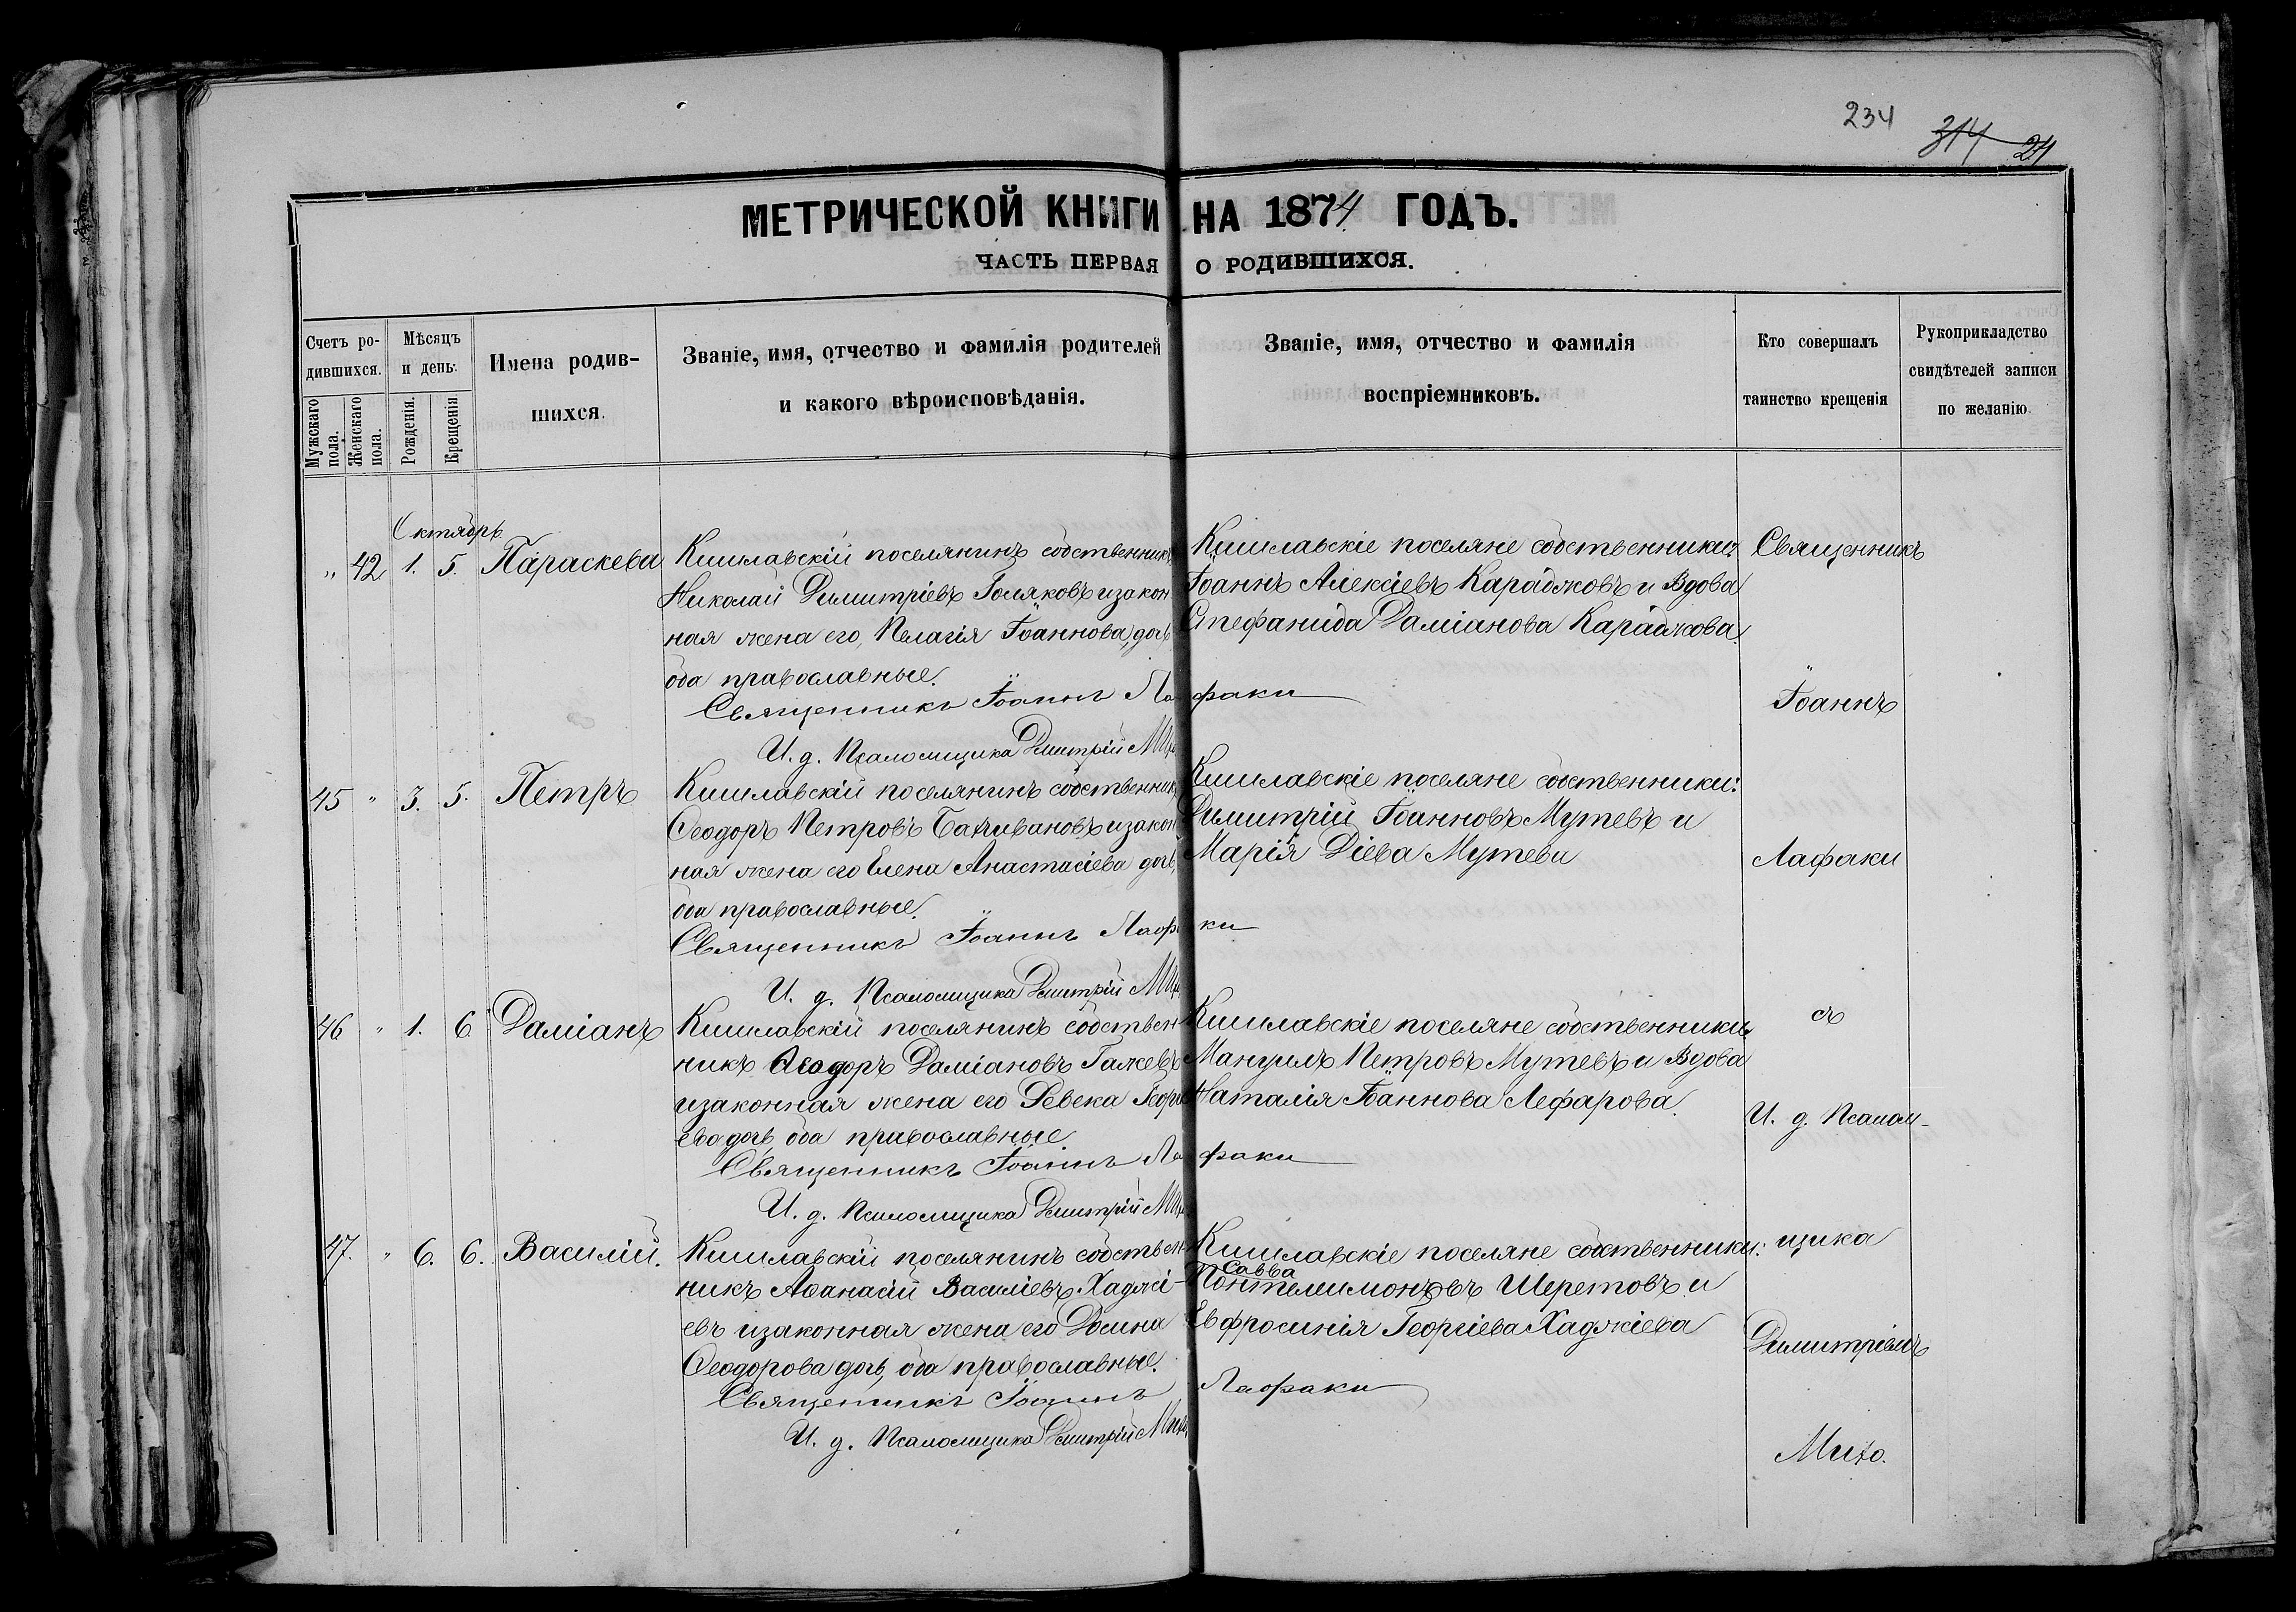 234
314 24
МЕТРИЧЕСКОЙ КНИГИ НА 1874 ГОДЪ.
ЧАСТЬ ПЕРВАЯ О РОДИВШИХСЯ.
Счетъ ро-
дившихся.
Мужскаго
пола.
Женскаго
пола.
Мѣсяцъ
и день.
Рожденія.
Крещенія
Имена родив-
шихся.
Званіе, имя, отчество и фамилія родителей
и какого вѣроисповѣданія.
Званіе, имя, отчество и фамилія
воспріемниковъ.
Кто совершалъ
таинство крещенія
Рукоприкладство
свидѣтелей записи
по желанію.
Октябрь
„ 42 1. 5. Параскева
Кишлавскій поселянинъ собственникъ
Николай Димитріевъ Голяковъ и закон
ная жена его, Пелагія Іоаннова дочь,
оба православные.
Священникъ Іоаннъ Лафаки
И. д. Псаломщика Димитрій
Кишлавскіе поселяне собственники:
Іоаннъ Алексіевъ Караджовъ и Вдова
Стефанида Даміанова Караджова.
45 „ 3. 5. Петръ
Кишлавскій поселянинъ собственникъ
Ѳеодоръ Петровъ Бахчивановъ и закон
ная жена его Елена Анастасіева дочь,
оба православные.
Священникъ Іоаннъ Лафаки
И. д. Псаломщика Димитрій
Кишлавскіе поселяне собственники:
Димитрій Іоанновъ Мутевъ и
Марія Діева Мутева
46 „ 1. 6 Даміанъ
Кишлавскій поселянинъ собствен-
никъ Ѳеодоръ Даміановъ Галжевъ
и законная жена его Ревека Георгі
ева дочь, оба православные.
Священникъ Іоаннъ Лафаки
И. д. Псаломщика Димитрій
Кишлавскіе поселяне собственники
Мануилъ Петровъ Мутевъ и Вдова
Наталія Іоаннова Лефарова.
47. „ 6. 6. Василій.
Кишлавскій поселянинъ собствен-
никъ Аѳанасій Василіевъ Хаджі-
евъ и законная жена его Домна
Ѳеодорова дочь, оба православные.
Священникъ Іоаннъ Лафаки
И. д. Псаломщика Димитрій
Кишлавскіе поселяне собственники:
Савва
Понтелимоновъ Шеретовъ и
Евфросинія Георгіева Хаджіева
Священникъ
Іоаннъ
Лафаки
съ
И. д. Псалом-
щика
Димитріемъ
Михо.